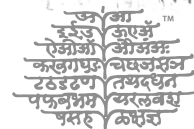 अं आ TM
इईउ ऊएॲ
ऐओऔ ऑअंअः
कखगघङ चछजझञ
टठडढण तथदधन
पफबभम यरलवश
षसह ळक्षज्ञ